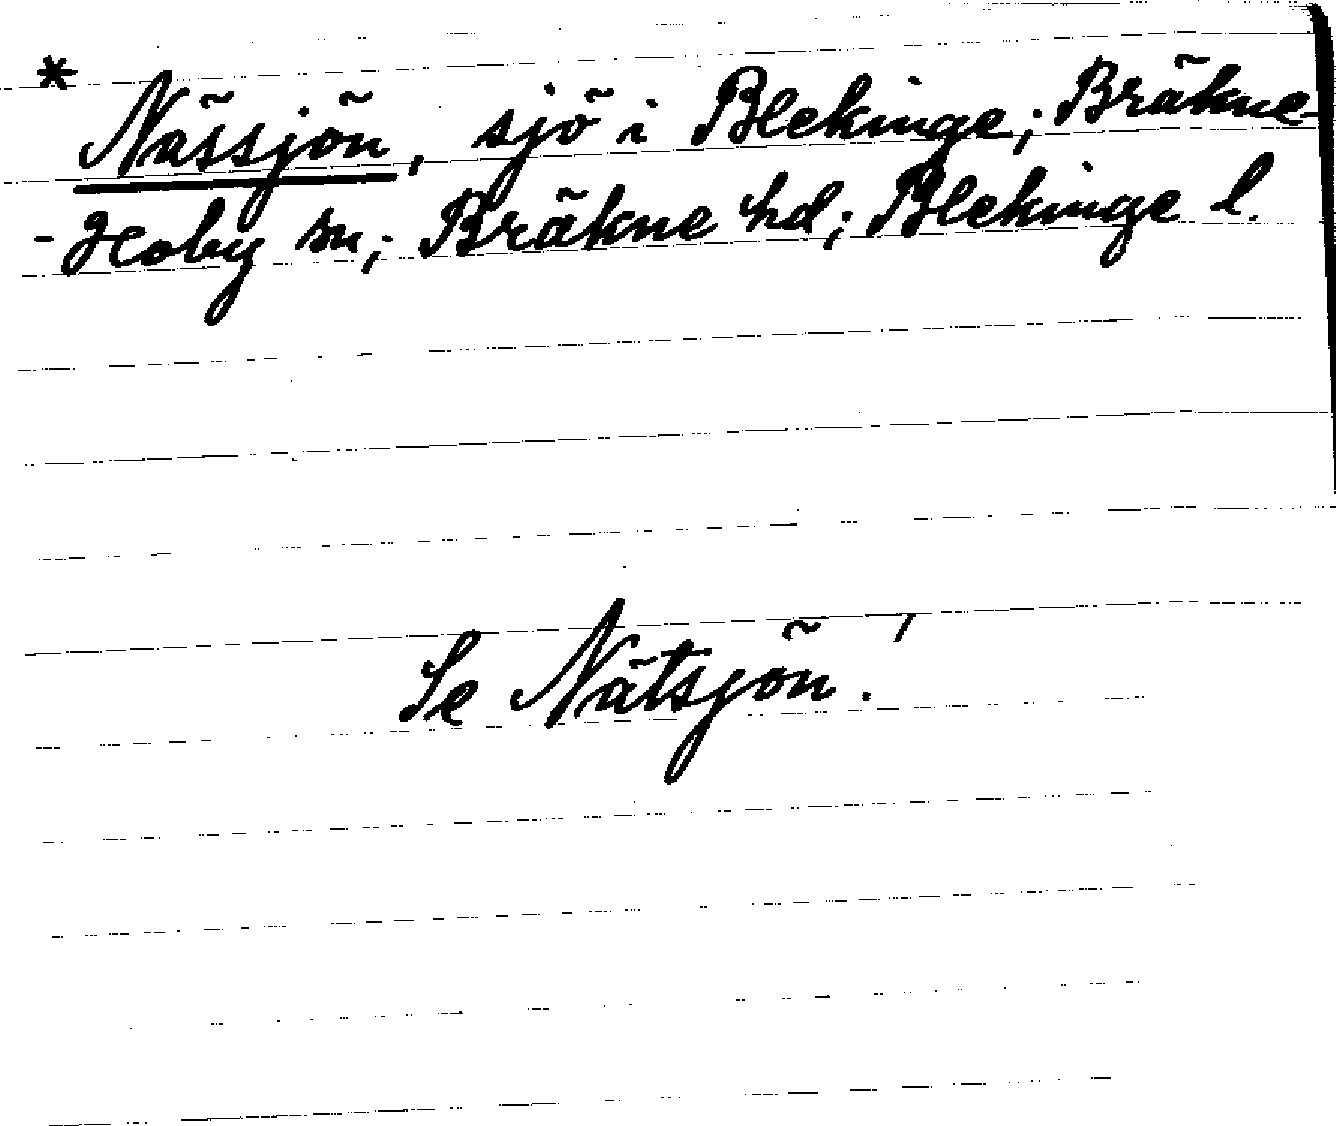 * Nässjön, sjö i Blekinge; Bräkne-
-Hoby sn; Bräkne hd; Blekinge l.
Se Nätsjön!